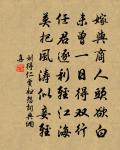 嫁與商人頭欲白
未曾一日得雙行
任君逐利輕江海
莫把風濤似妾輕
劉得仁賈婦怨詞典網